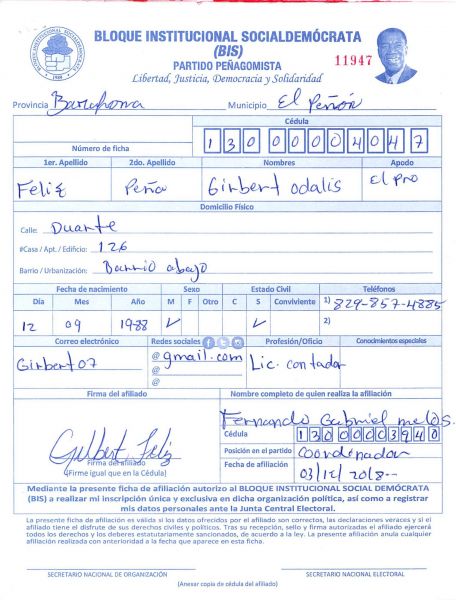 BLOQUE INSTITUCIONAL SOCIALDEMÓCRATA
(BIS)
PARTIDO PEÑAGOMISTA
Libertad, Justicia, Democracia y Solidaridad
11947
Provincia Barahona Municipio El Peñón
Cédula
Número de ficha 13000004047
1er. Apellido 2do. Apellido Nombres Apodo
Feliz Peña Girbert odalis El pro
Domicilio Físico
Calle: Duarte
#Casa / Apt. / Edificio: 126
Barrio / Urbanización: Barrio abajo
Fecha de nacimiento Sexo Estado Civil Teléfonos
Día Mes Año M F Otro C S Conviviente 1) 829-857-4885
12 09 1988 ✓ ✓ 2)
Correo electrónico Redes sociales Profesión/Oficio Conocimientos especiales
Girbert07 @gmail.com Lic. contador
@
@
Firma del afiliado Nombre completo de quien realiza la afiliación
Fernando Gabriel
Cédula
13000003940
Gilbert Feliz Posición en el partido Coordinador
Firma del afiliado
(Firme igual que en la Cédula) Fecha de afiliación 03/12/2018
Mediante la presente ficha de afiliación autorizo al BLOQUE INSTITUCIONAL SOCIAL DEMÓCRATA
(BIS) a realizar mi inscripción única y exclusiva en dicha organización política, así como a registrar
mis datos personales ante la Junta Central Electoral.
La presente ficha de afiliación es válida si los datos ofrecidos por el afiliado son correctos, las declaraciones veraces y si el
afiliado tiene el disfrute de sus derechos civiles y políticos. Tras su recepción, sello y firma autorizadas el afiliado ejercerá
todos los derechos y los deberes estatutariamente sancionados, de acuerdo a la ley. La presente afiliación anula cualquier
afiliación realizada con anterioridad a la fecha que aparece en esta ficha.
SECRETARIO NACIONAL DE ORGANIZACIÓN SECRETARIO NACIONAL ELECTORAL
(Anexar copia de cédula del afiliado)